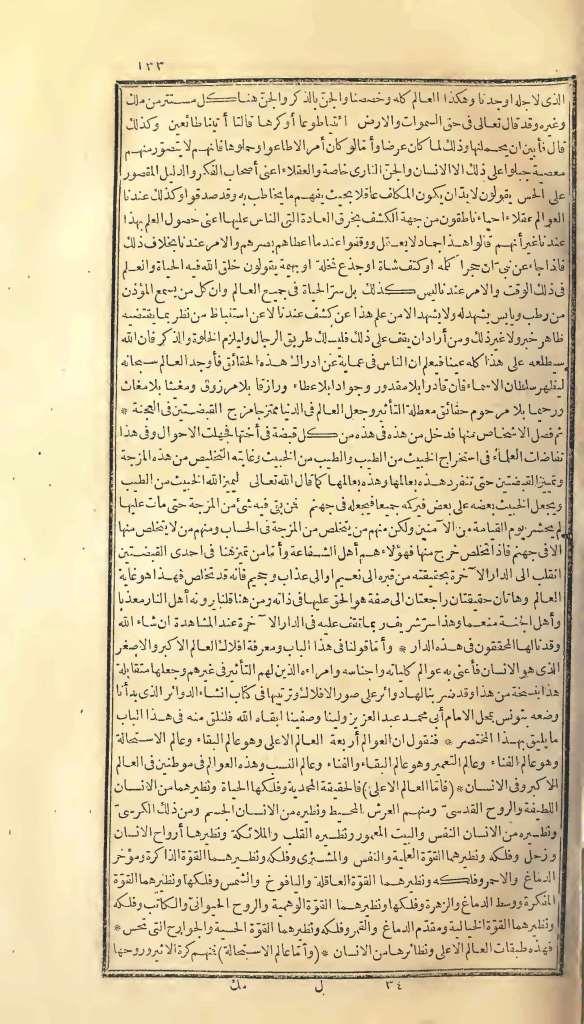 ١٣٣
الذي لاجله اوجدنا وهكذا العالم كله وخصصنا والجنّ بالذكر والجنّ هنا كل مستتر من ملك
وغيره وقد قال تعالى في حق السموات والارض ائتيا طوعا أو كرها قالتا أتينا طائعين وكذلك
قال فأبين أن يحملنها وذلك لما كان عرضا وأما لو كان أمر الاطاعوا وحملوها فانهم لا يتصوّر منهم
معصية جبلوا على ذلك الا الانسان والجنّ الناري خاصة والعقلاء اعنى أصحاب الفكر والدليل المقصور
على الحس يقولون لابد ان يكون المكلف عاقلا بحيث يفهم ما يخاطب به وقد صدقوا وكذلك عندنا
العوالم عقلاء احياء ناطقون من جهة الكشف بخرق العادة التى الناس عليها اعنى حصول العلم بهذا
عندنا غير أنهم قالوا هذا جماد لا يعقل ووقفوا عند ما أعطاهم بصرهم والامر عندنا بخلاف ذلك
فاذا جاء عن نبيّ ان حجرا كله او كتف شاة او جذع نخلة او بهيمة يقولون خلق الله فيه الحياة والعلم
فى ذلك الوقت والامر عندنا ليس كذلك بل سرّ الحياة فى جميع العالم وان كل من يسمع المؤذن
من رطب ويابس يشهد له ولا يشهد الا من علم هذا عن كشف عندنا لا عن استنباط من نظر بما يقتضيه
ظاهر خبر ولا غير ذلك ومن أراد ان يقف على ذلك فليسلك طريق الرجال وليلزم الخلوة والذكر فان الله
سيطلعه على هذا كله عينا فيعلم ان الناس فى عماية عن ادراك هذه الحقائق فأوجد العالم سبحانه
ليظهر سلطان الاسماء فان قادرا بلا مقدور وجوادا بلا عطاء ورازقا بلا مرزوق ومغيثا بلا مغاث
ورحيما بلا مرحوم حقائق معطلة التأثير وجعل العالم فى الدنيا ممتزجا مزج القبضتين فى العجنة *
ثم فصل الاشخاص منها فدخل من هذه فى هذه من كل قبضة فى أختها فجهلت الاحوال وفى هذا
تفاضلت العلماء فى استخراج الخبيث من الطيب والطيب من الخبيث وغايته التخليص من هذه المزجة
وتمييز القبضتين حتى تنفرد هذه بعالمها وهذه بعالمها كما قال الله تعالى ليميز الله الخبيث من الطيب
ويجعل الخبيث بعضه على بعض فيركمه جميعا فيجعله فى جهنم فمن بقى فيه شئ من المزجة حتى مات عليها
لم يحشر يوم القيامة من الآمنين ولكن منهم من يتخلص من المزجة فى الحساب ومنهم من لا يتخلص منها
الا فى جهنم فاذا تخلص خرج منها فهؤلاء هم أهل الشفاعة وأما من تميز هنا فى احدى القبضتين
انقلب الى الدار الآخرة بحقيقته من قبره الى نعيم او الى عذاب وجحيم فانه قد تخلص فهذا هو غاية
العالم وهاتان حقيقتان راجعتان الى صفة هو الحق عليها فى ذاته ومن هنا قلنا يرونه أهل النار معذبا
وأهل الجنة منعما وهذا سرّ شريف ربما تقف عليه فى الدار الآخرة عند المشاهدة ان شاء الله
وقد نالها المحققون فى هذه الدار * وأما قولنا فى هذا الباب ومعرفة افلاك العالم الاكبر والاصغر
الذى هو الانسان فأعنى به عوالم كلياته واجناسه وامراءه الذين لهم التأثير فى غيرهم وجعلها متقابلة
هذا نسخة من هذا وقد ضربنا لها دوائر على صور الافلاك وترتيبها فى كتاب انشاء الدوائر الذى بدأنا
وضعه بتونس بمحل الامام أبى محمد عبد العزيز ولينا وصفينا ابقاه الله فلنلق منه فى هذا الباب
ما يليق بهذا المختصر * فنقول ان العوالم أربعة العالم الاعلى وهو عالم البقاء وعالم الاستحالة
وهو عالم الفناء وعالم التعمير وهو عالم البقاء والفناء وعالم النسب وهذه العوالم فى موطنين فى العالم
الاكبر وفى الانسان * (فأمّا العالم الاعلى) فالحقيقة المحمدية وفلكها الحياة ونظيرهما من الانسان
اللطيفة والروح القدسىّ ومنهم العرش المحيط ونظيره من الانسان الجسم ومن ذلك الكرسىّ
ونظيره من الانسان النفس والبيت المعمور ونظيره القلب والملائكة ونظيرها أرواح الانسان
وزحل وفلكه ونظيرهما القوّة العلمية والنفس والمشترى وفلكه ونظيرهما القوّة الذاكرة ومؤخر
الدماغ والاحمر وفلكه ونظيرهما القوّة العاقلة واليافوخ والشمس وفلكها ونظيرهما القوّة
المفكرة ووسط الدماغ والزهرة وفلكها ونظيرهما القوّة الوهمية والروح الحيوانىّ والكاتب وفلكه
ونظيرهما القوّة الخيالية ومقدّم الدماغ والقمر وفلكه ونظيرهما القوّة الحسية والجوارح التى تحس *
فهذه طبقات العالم الاعلى ونظائرها من الانسان * (وأمّا عالم الاستحالة) فمنهم كرة الاثير وروحها
٣٤ ل مك